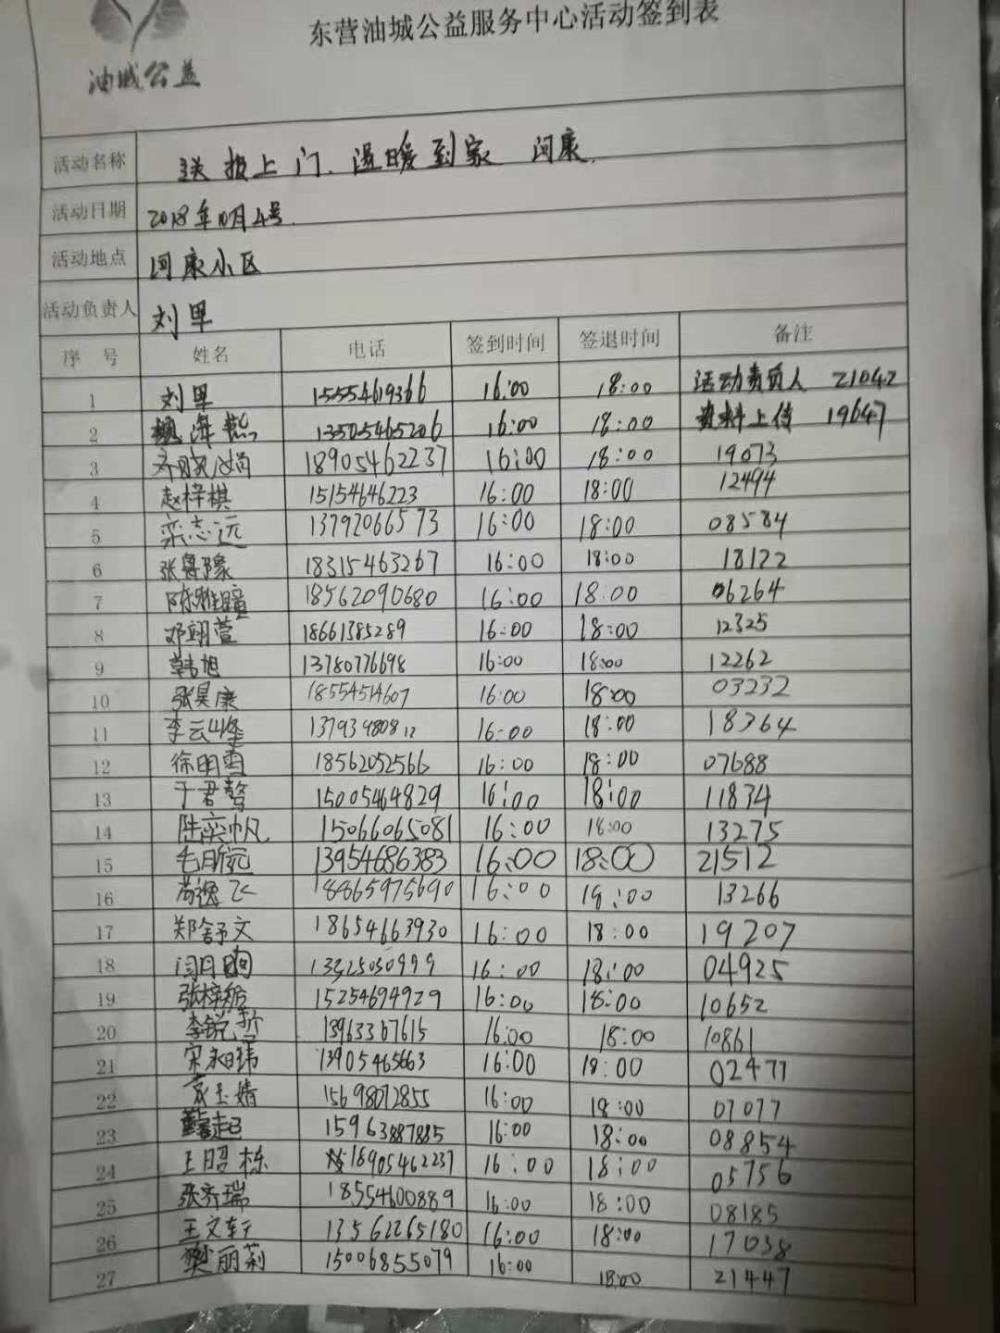 东营油城公益服务中心活动签到表
油城公益
活动名称 送报上门、温暖到家 河康
活动日期 2018年10月4号
活动地点 河康小区
活动负责人 刘里
序 号 姓名 电话 签到时间 签退时间 备注
1 刘里 15554619366 16:00 18:00 活动责负人 21042
2 13505465206 16:00 18:00 资料上传 19647
3 18905462237 16:00 18:00 19073
4 赵梓棋 15154646223 16:00 18:00 12494
5 栾志远 13792066573 16:00 18:00 08584
6 张鲁豫 18315463267 16:00 18:00 18122
7 陈雅瞳 18562090680 16:00 18:00 06264
8 邓翊萱 18661385289 16:00 18:00 12325
9 韩旭 13780776698 16:00 18:00 12262
10 张昊康 18554514607 16:00 18:00 03232
11 李云峰 13793980812 16:00 18:00 18364
12 徐明雪 18562052566 16:00 18:00 07688
13 于君 15005464829 16:00 18:00 11834
14 陆奕帆 15066065081 16:00 18:00 13275
15 13954686383 16:00 18:00 21512
16 尚逸飞 18865975690 16:00 18:00 13266
17 郑舒文 18654663930 16:00 18:00 19207
18 16:00 18:00 04925
19 15254694929 16:00 18:00 10652
20 李锐哲 13963367615 16:00 18:00 10861
21 13905465663 16:00 18:00 02477
22 袁玉婧 15698072855 16:00 18:00 07077
23 15963887885 16:00 18:00 08854
24 王昭栋 18905462237 16:00 18:00 05756
25 张齐瑞 18554600889 16:00 18:00 08185
26 王文轩 13561265180 16:00 18:00 17038
27 樊丽莉 15006855079 16:00 18:00 21447